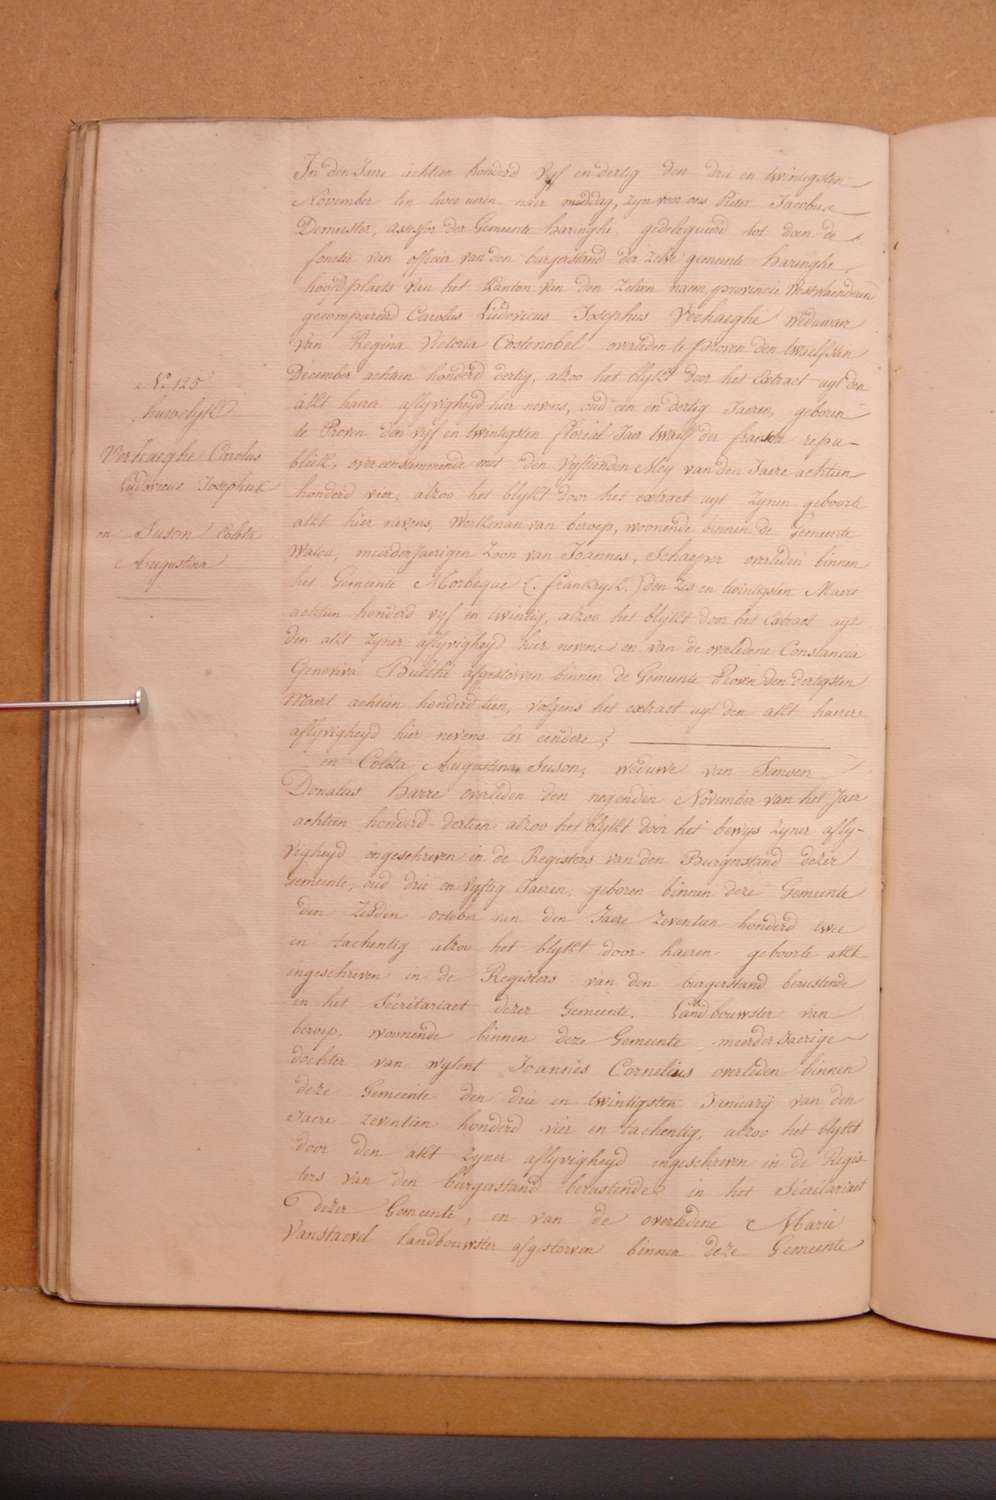 N° 125
huwelyk
Verhaeghe Carolus
Ludovicus Josephus
en Suson Coleta
Augustina
In den Jaere achtien honderd vyf en dertig den drie en twintigsten
November ten twee uren naer middag, zyn voor ons Pieter Jacobus
Demeester, assessor der Gemeente haringhe gedelegueerd tot doen de
fonctie van officier van den burgerstand der zelve gemeente haringhe,
hoofdplaets van het Kanton van den zelven naem, provincie Westvlaenderen
gecompareerd Carolus Ludovicus Josephus Verhaeghe weduwaer
van Regina Victoria Costenobel overleden te proven den twaelfsten
December achtien honderd dertig, alzoo het blykt door het Extract uyt den
akt haerer aflyvigheyd hier nevens, oud een en dertig Jaeren, geboren
te Proven den vyf en twintigsten floreal Jaer twaelf der fransche repu-
bliek, overeenstemmende met den vyftienden Mey van den Jaere achtien
honderd vier, alzoo het blykt door het extract uyt zynen geboorte
akt hier nevens, Werkman van beroep, woonende binnen de Gemeente
Watou, meerderjaerigen Zoon van Joannes, overleden binnen
het Gemeente Morbeque (frankryk) den zes en twintigsten Maert
achtien honderd vyf en twintig, alzoo het blykt door het Extract uyt
den akt zyner aflyvigheyd hier nevens en van de overledene Constancia
Genoveva afgestorven binnen de Gemeente Proven den dertigsten
Maert achtien honderd tien, volgens het extract uyt den akt haerer
aflyvigheyd hier nevens ter eendere;
en Coleta Augustina Suson, weduwe van Simoen
Donatus harre overleden den negenden November van het Jaer
achtien honderd dertien alzoo het blykt door het bewys zyner afly-
vigheyd ongeschreven in de Registers van den Burgerstand dezer
Gemeente, oud drie en vyftig Jaeren, geboren binnen deze Gemeente
den zesden october van den Jaere zeventien honderd twee
en tachentig alzoo het blykt door haeren geboorte akt
ingeschreven in de Registers van den burgerstand berustende
in het Sécrétariaet dezer Gemeente, Landbouwster van
beroep, woonende binnen deze Gemeente meerderJaerige
dochter van wylent Joannes Cornelius overleden binnen
deze Gemeente den drie en twintigsten Januarÿ van den
Jaere zeventien honderd vier en tachentig, alzoo het blykt
door den akt zyner aflyvigheyd ingeschreven in de Regis
ters van den burgerstand berustende in het Sécrétariaet
dezer Gemeente, en van de overledene Marie
Vanstaevel landbouwster afgestorven binnen deze Gemeente